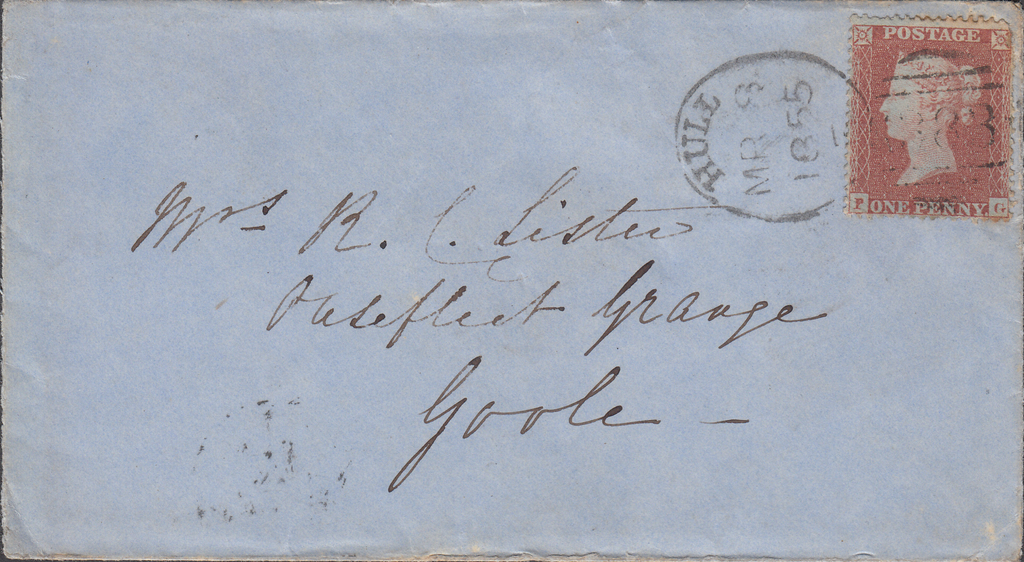 POSTAGE
HULL
MR 8
1855
P ONE PENNY. G
Mrs R. C. Lister
Ousefleet Grange
Goole –